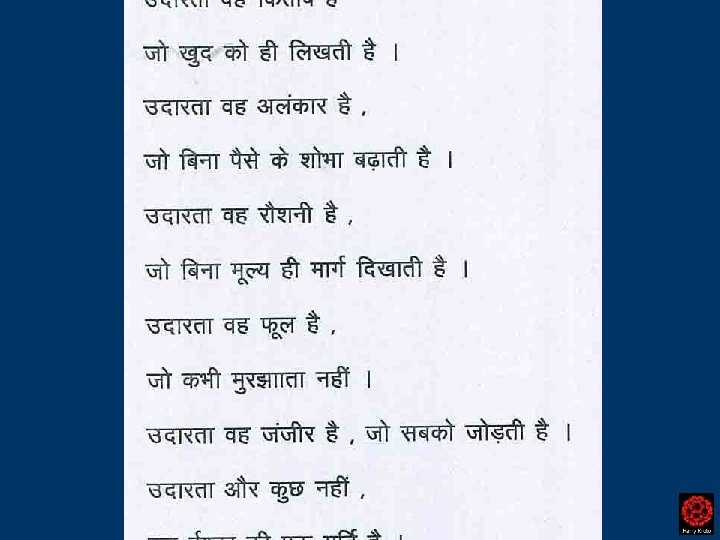 उदारता वह किताब है
जो खुद को ही लिखती है ।
उदारता वह अलंकार है ,
जो बिना पैसे के शोभा बढ़ाती है ।
उदारता वह रौशनी है ,
जो बिना मूल्य ही मार्ग दिखाती है ।
उदारता वह फूल है ,
जो कभी मुरझााता नहीं ।
उदारता वह जंजीर है , जो सबको जोड़ती है ।
उदारता और कुछ नहीं ,
की एक मूर्ति है ।
Harry Kroto